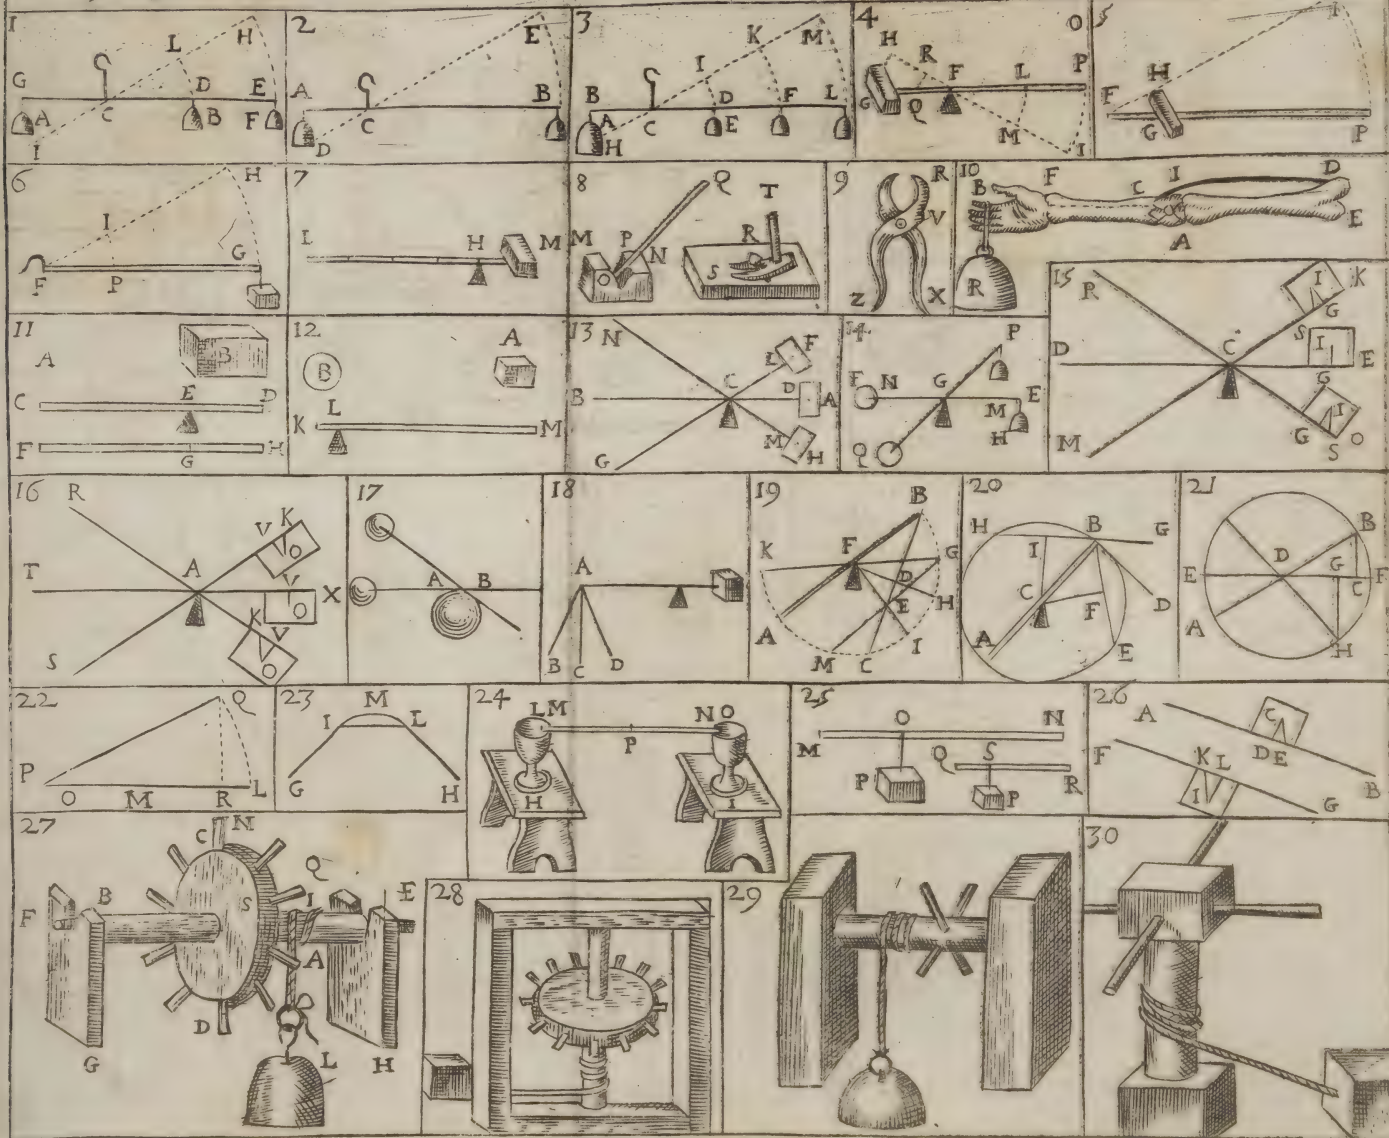 1 L H G D E A C B F I
2 E A B C D
3 K M I B D F L A C E H
4 O H R F L P G Q M I
5 I H F G P
6 H I G F P
7 L H M
8 Q T M P R N O S
9 R V Z X
10 B F C I D E A R
11 A B C E D F G H
12 A B L K M
13 N F L C D B A M G H
14 P F N G E M H Q
15 R I K G S D C I E G I M G S O
16 R V K O T A V X O K V S O
17 A B
18 A B C D
19 B F G K D H E A I M C
20 H B G I C D F A E
21 B D G E C F A H
22 Q P O M R L
23 M I L G H
24 L M N O P H I
25 O N M S Q P R P
26 A C D E F K L B I G
27 N C Q B S I E F A D L G H
28
29
30